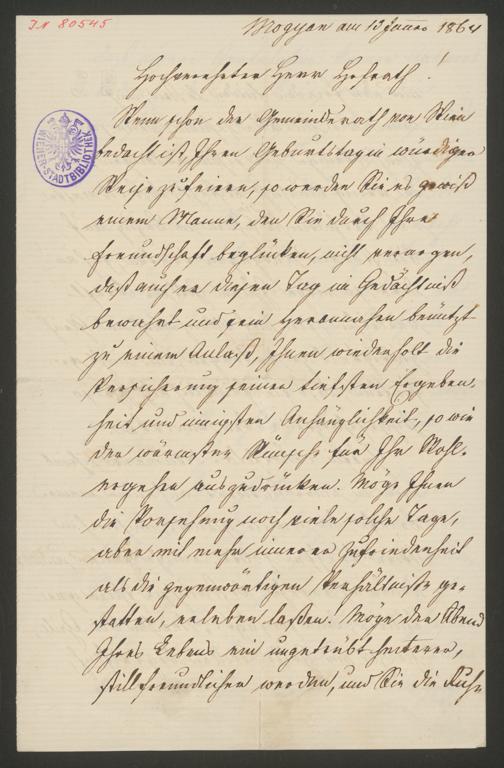 IN 80545
Mogyan am 13 Jänner 1864
Hochverehrter Herr Hofrath!
WIENER STADTBIBLIOTHEK
Wenn schon der Gemeinderath von Wien
bedacht ist, Ihren Geburtstag in würdiger
Weise zu feiern, so werden Sie es gewiß
einem Manne, den Sie durch Ihre
Freundschaft beglücken, nicht verargen,
daß auch er diesen Tag in Gedächtniß
bewahrt und sein Herannahen benützt
zu einem Anlaß, Ihnen wiederholt die
Versicherung seiner tiefsten Ergeben-
heit und innigsten Anhänglichkeit, so wie
der wärmsten Wünsche für Ihr Wohl-
ergehen auszudrücken. Möge Ihnen
die Vorsehung noch viele solche Tage,
aber mit mehr innerer Zufriedenheit
als die gegenwärtigen Verhältnisse ge-
statten, erleben laßen! Möge der Abend
Ihres Lebens ein ungetrübt heiterer,
still freundlicher werden, und Sie die Ruhe